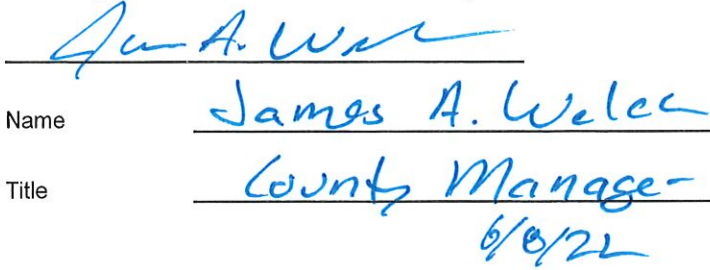 James A. Welch
Name James A. Welch
Title County Manager
6/8/22